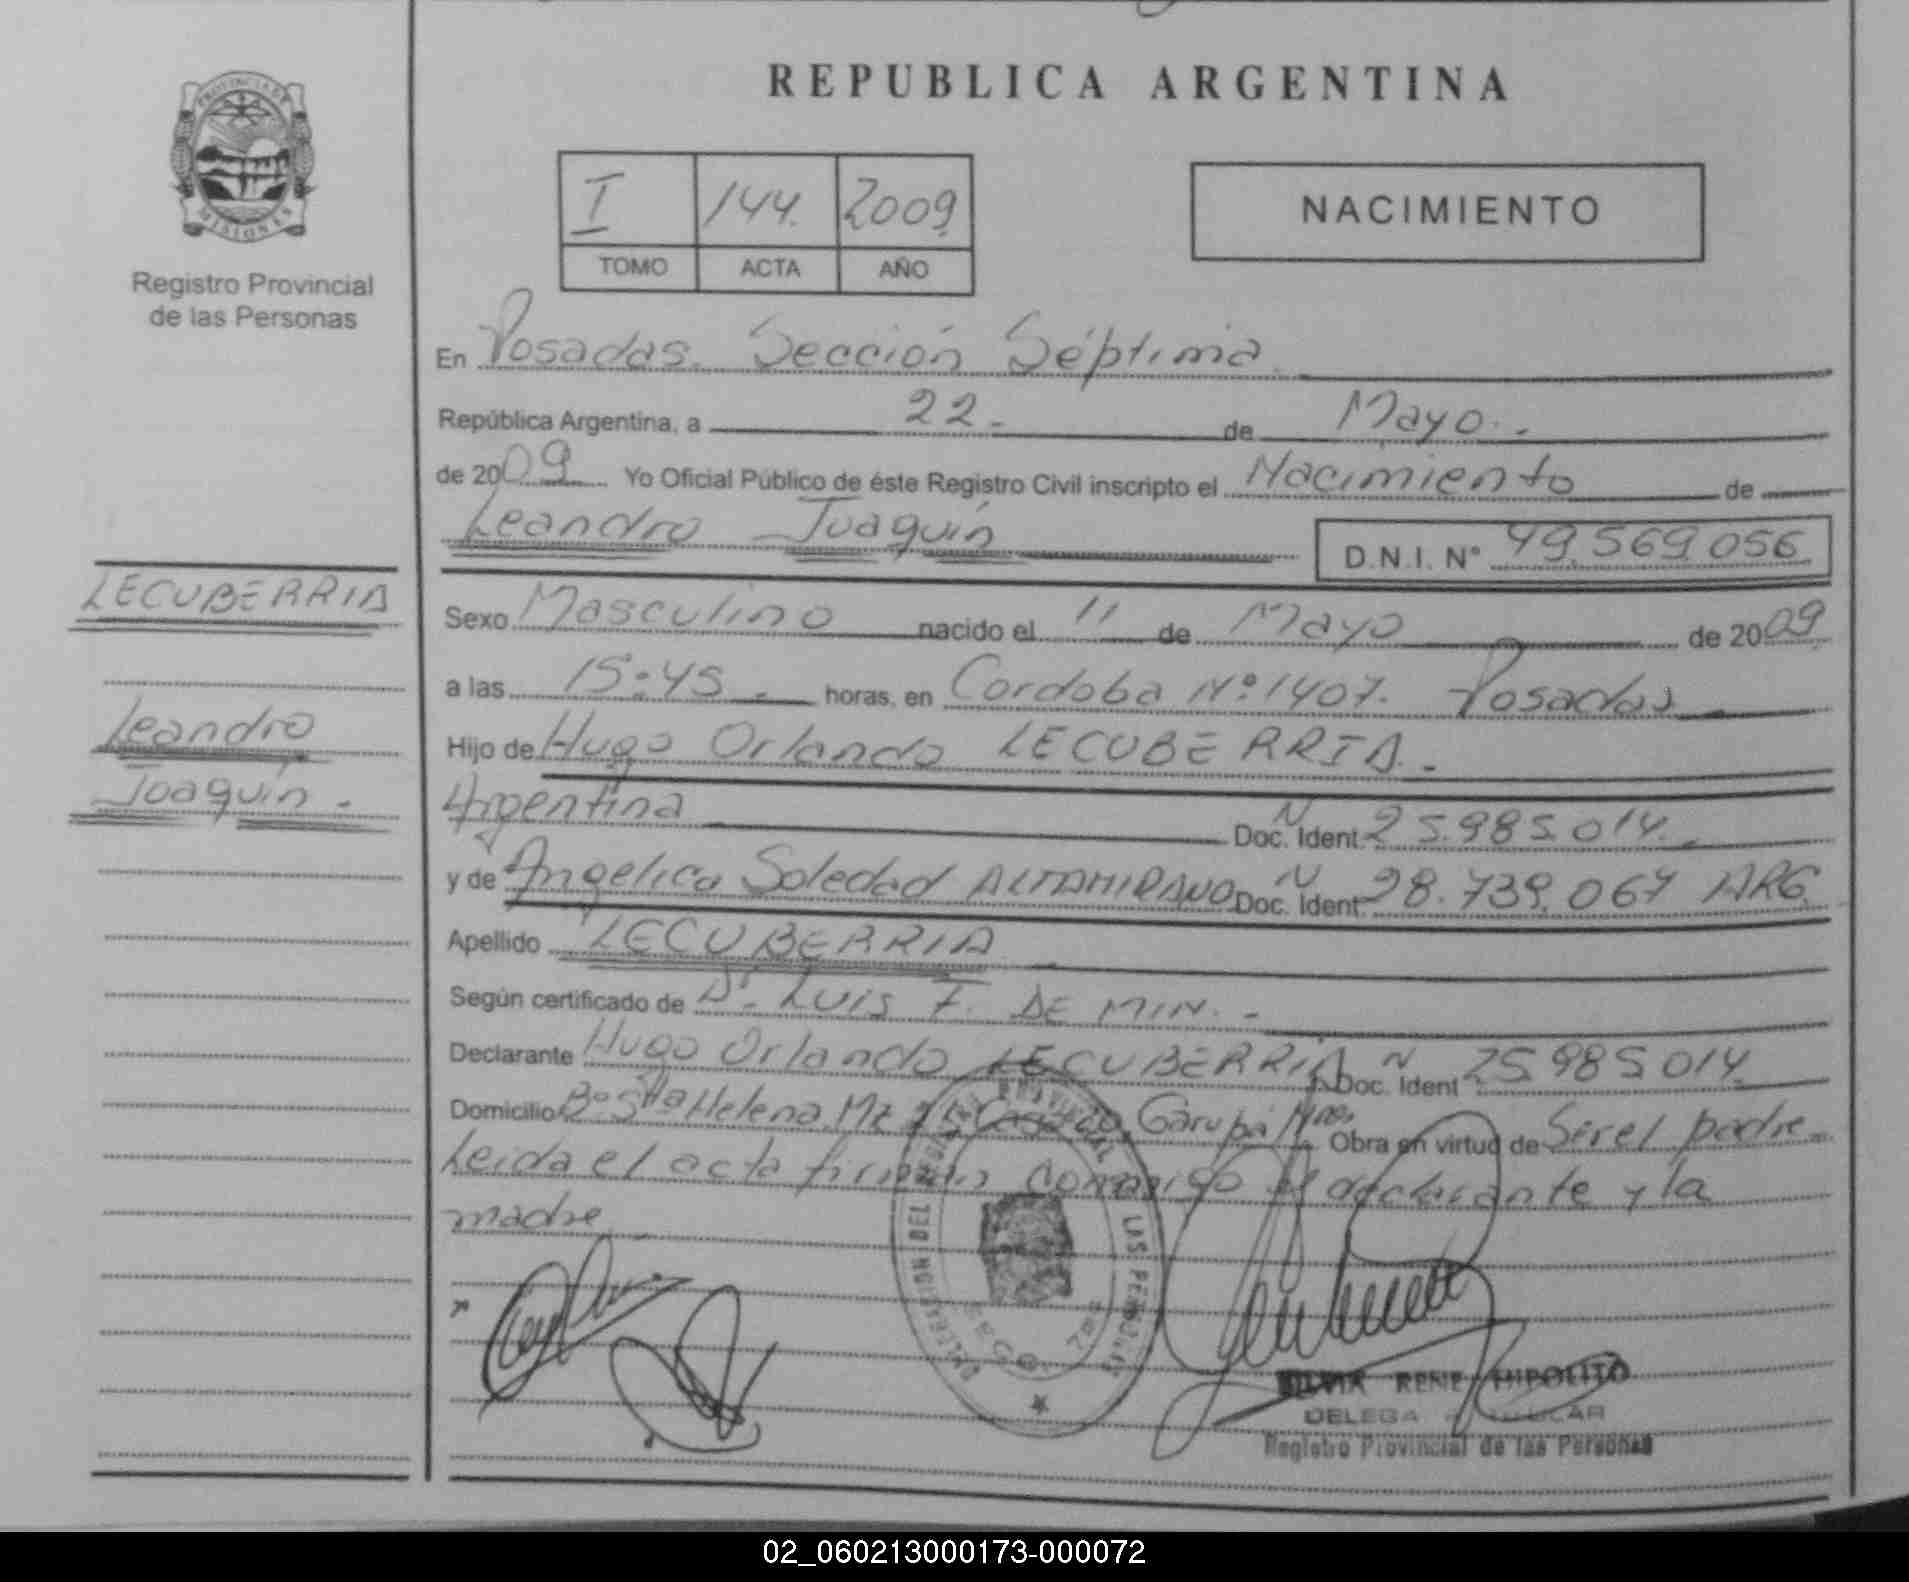 REPUBLICA ARGENTINA
PROVINCIA DE
MISIONES
Registro Provincial
de las Personas
I 144. 2009.
TOMO ACTA AÑO
NACIMIENTO
En Posadas. Sección Séptima
República Argentina, a 22. de Mayo.
de 2009 Yo Oficial Público de éste Registro Civil inscripto el Nacimiento de
Leandro Joaquín D.N.I. N° 49.569.056
LECUBERRIA
Leandro
Joaquín.
Sexo Masculino nacido el 11 de Mayo de 2009
a las 15:45. horas, en Cordoba N°:1407. Posadas
Hijo de Hugo Orlando LECUBERRIA.
Argentina N Doc. Ident. 25.985.014.
y de Angelica Soledad ALTAMIRANO N Doc. Ident. 28.739.067 ARG.
Apellido LECUBERRIA
Según certificado de Dr. LUIS F. DE MIN.
Declarante Hugo Orlando LECUBERRIA N Doc. Ident. 25.985.014
Domicilio B° Sta Helena Mz Casa Garupá Mnes. Obra en virtud de Ser el padre
Leida el acta firman conmigo el declarante y la
madre
DELEGACION DEL REGISTRO PROVINCIAL LAS PERSONAS
SILVIA RENE HIPOLITO
DELEGADA TITULAR
Registro Provincial de las Personas
02_060213000173-000072